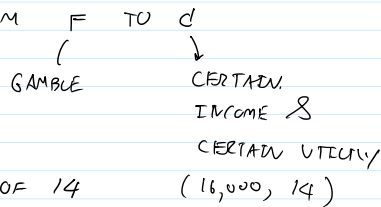 M F TO d
GAMBLE CERTAIN.
INCOME &
CERTAIN UTILITY
OF 14 (16,000, 14)